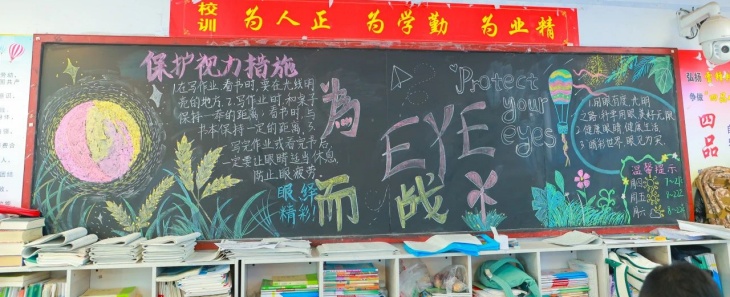 校训
为人正 为学勤 为业精
保护视力措施
1.在写作业、看书时,要在光线明
亮的地方,2.写作业时,和桌子
保持一拳的距离,看书时,与
书本保持一定的距离,3.
写完作业或看完书后,
一定要让眼睛适当休息,
防止眼疲劳。
眼绎
精彩
為
而
战
EYE
Protect
your
eyes
1.用眼有度,光明
之路;科学用眼,美好无限
2.健康眼睛,健康生活
3.睛彩世界,眼见为实。
温馨提示
弘扬
争做
四品